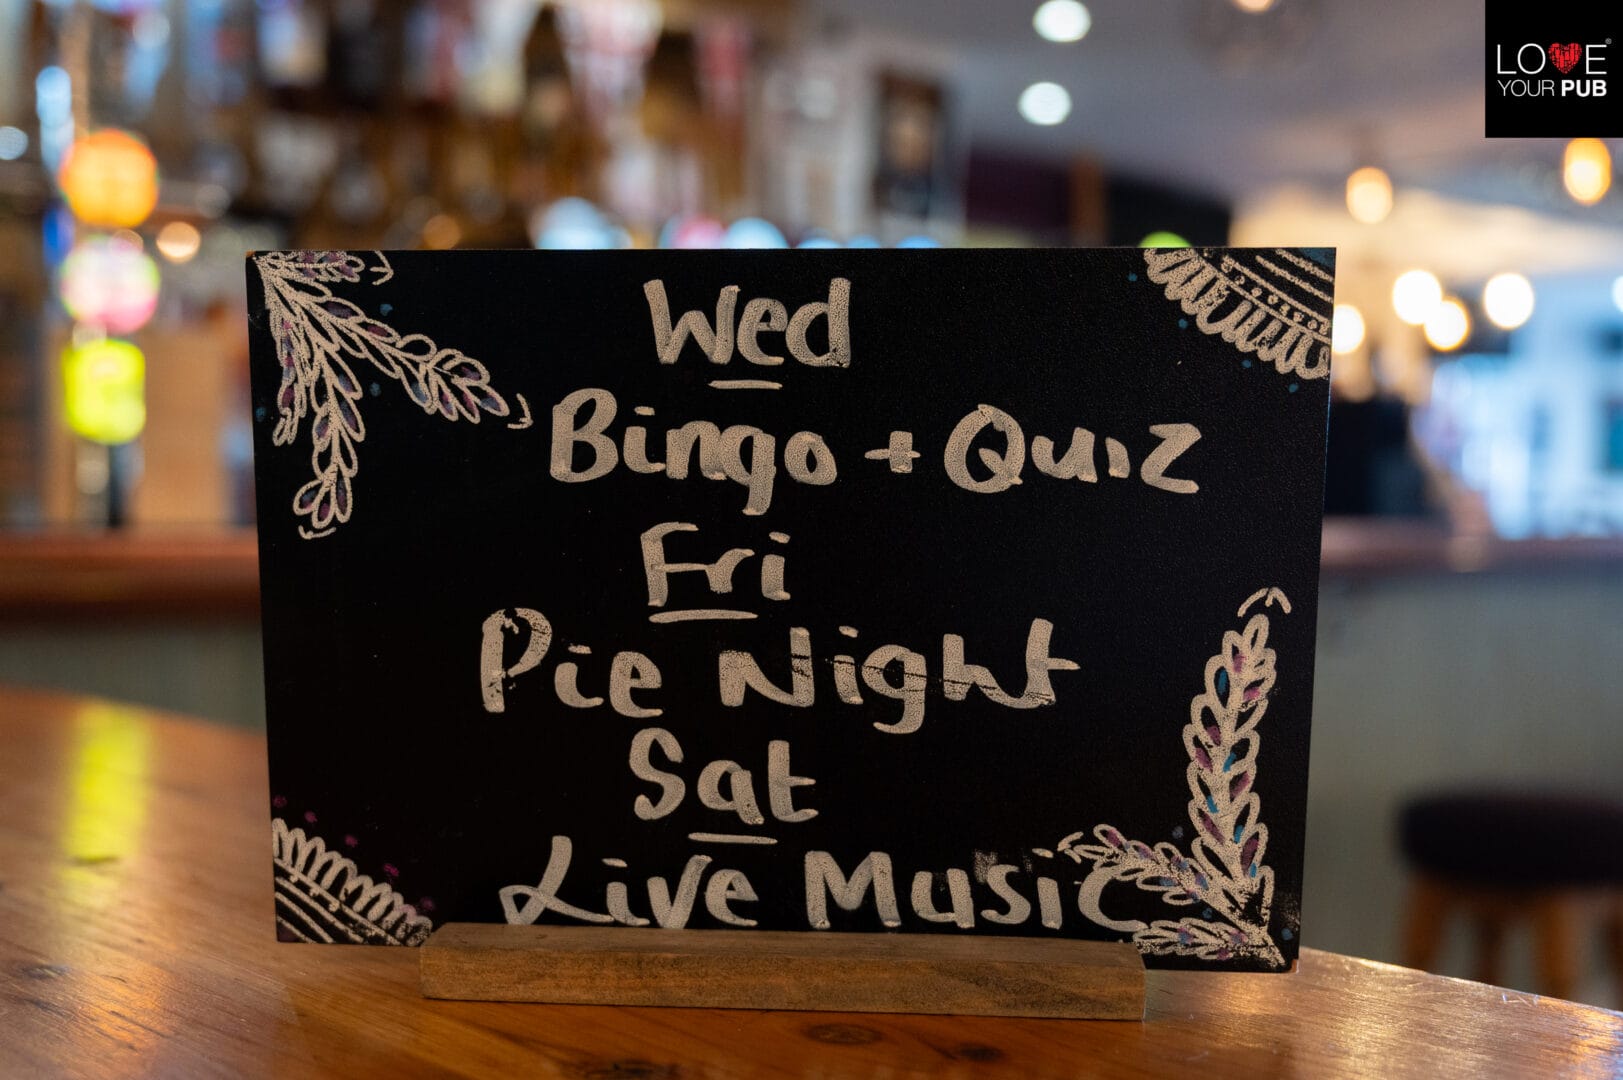 LOVE®
YOUR PUB
Wed
Bingo + Quiz
Fri
Pie Night
Sat
Live Music